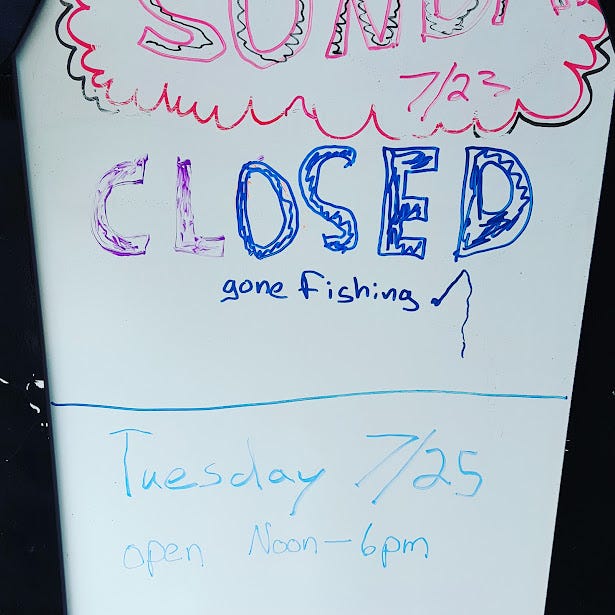 SUNDA
7/23
CLOSED
gone Fishing
Tuesday 7/25
open Noon-6pm